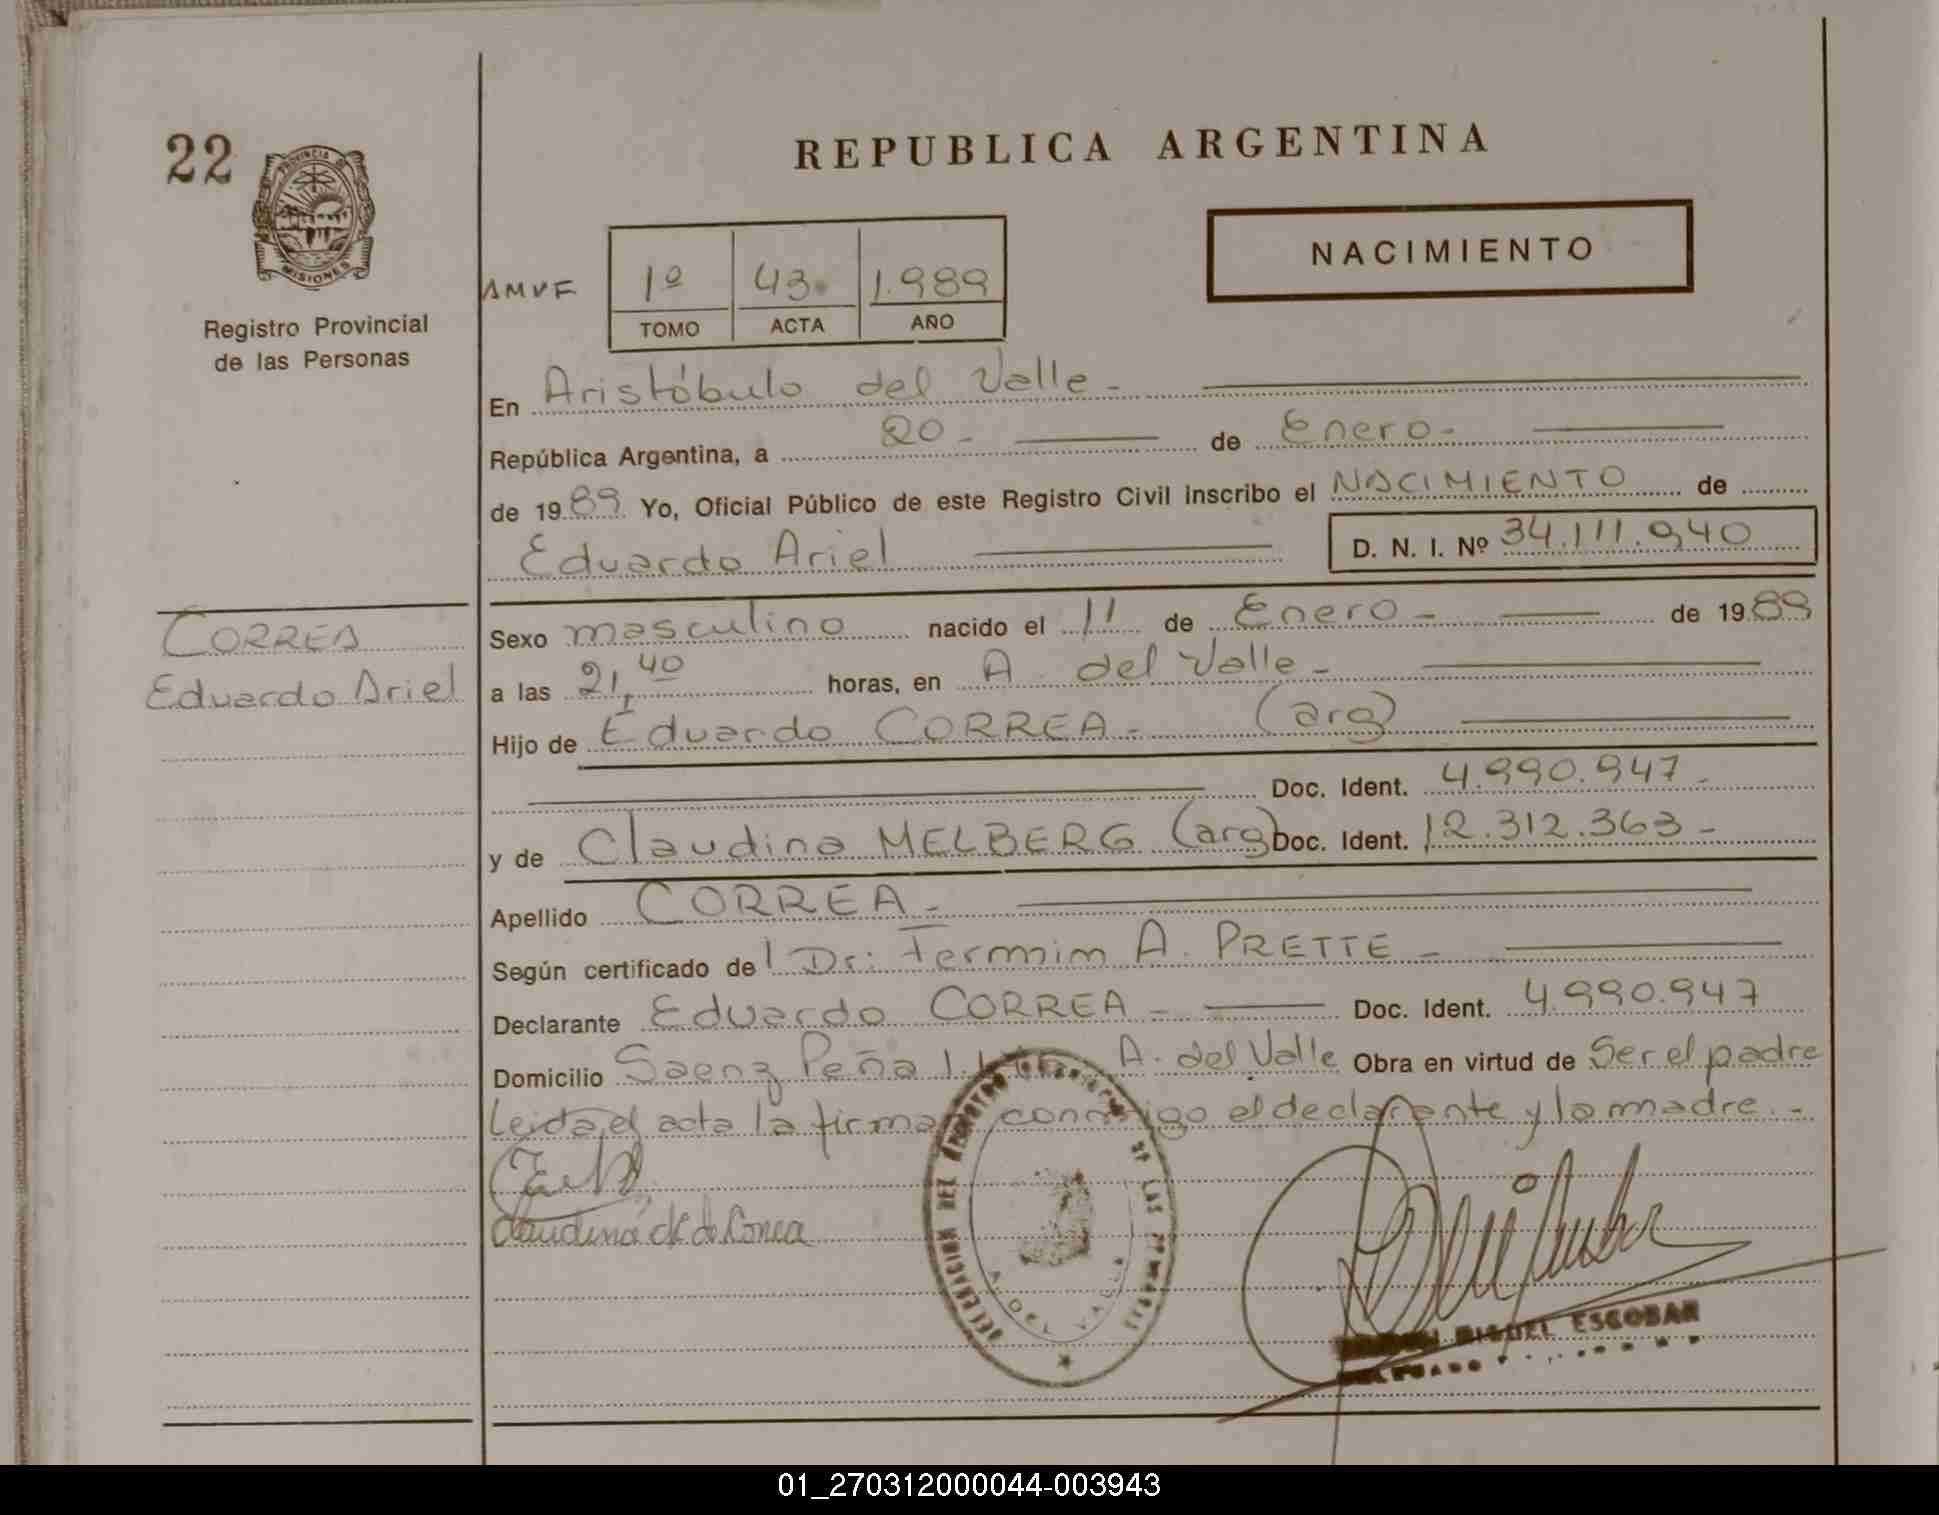 22
PROVINCIA DE
MISIONES
Registro Provincial
de las Personas
REPUBLICA ARGENTINA
NACIMIENTO
AMVF
1º 43. 1.989
TOMO ACTA AÑO
En Aristóbulo del Valle-
República Argentina, a 20- de Enero-
de 1989 Yo, Oficial Público de este Registro Civil inscribo el NACIMIENTO de
Eduardo Ariel D. N. I. Nº 34.111.940
CORREA
Eduardo Ariel
Sexo masculino nacido el 11 de Enero- de 1989
a las 21,40 horas, en A. del Valle-
Hijo de Eduardo CORREA- (arg)
Doc. Ident. 4.990.947-
y de Claudina MELBERG (arg) Doc. Ident. 12.312.363-
Apellido CORREA-
Según certificado del Dr: Fermmin A. PRETTE-
Declarante Eduardo CORREA- Doc. Ident. 4.990.947
Domicilio Saenz Peña A. del Valle Obra en virtud de Ser el padre
Leida el acta la firman conmigo el declarante y la madre.-
Claudina de Correa
DELEGACION DEL REGISTRO PROVINCIAL DE LAS PERSONAS
A. DEL VALLE
MIGUEL ESCOBAR
01_270312000044-003943